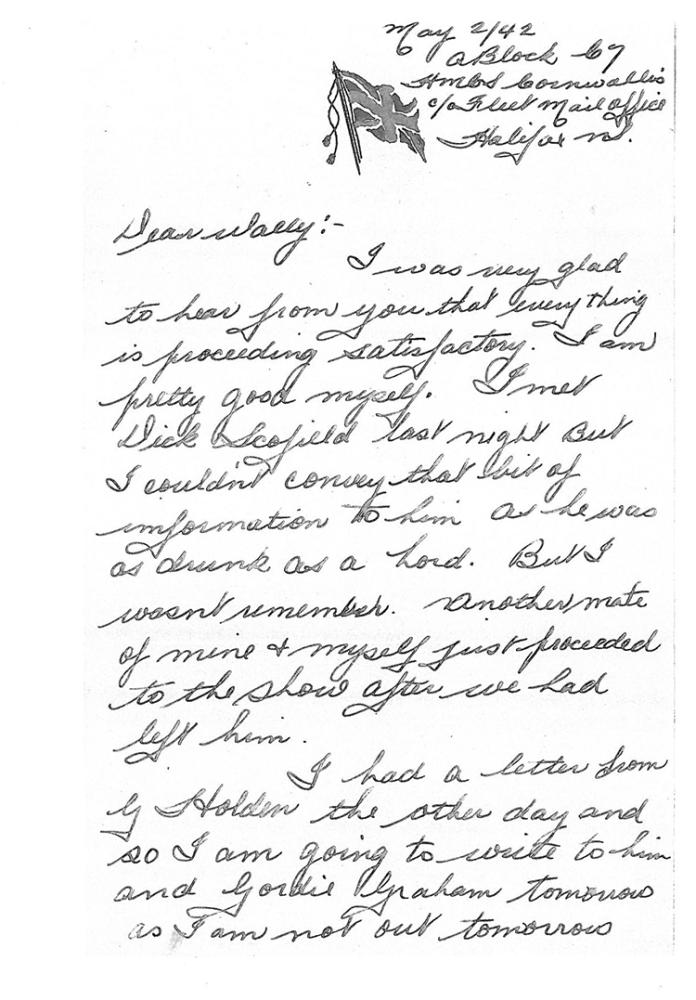 May 2/42
a Block 67
HMCS Cornwallis
c/o Fleet Mail Office
Halifax NS.
Dear Wally:-
I was very glad
to hear from you that everything
is proceeding satisfactory. I am
pretty good myself. I met
Dick Scofield last night But
I couldn't convey that bit of
information to him as he was
as drunk as a lord. But I
wasnt remember. Another mate
of mine & myself just proceeded
to the show after we had
left him.
I had a letter from
G Holden the other day and
so I am going to write to him
and Gordie Graham tomorrow
as I am not out tomorrow